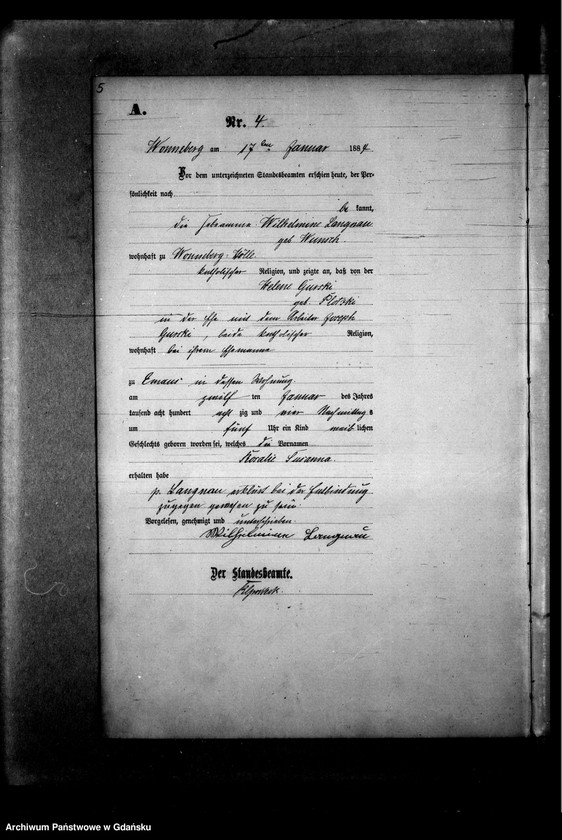 5
A.
Nr. 4.
Wonneberg am 17ten Januar 1884
Vor dem unterzeichneten Standesbeamten erschien heute, der Per-
sönlichkeit nach
be kannt,
die Hebamme Wilhelmine Langnau
geb. Wunsch
wohnhaft zu Wonneberg-Hölle
katholischer Religion, und zeigte an, daß von der
Helene Gurski
geb.
in der Ehe mit dem Arbeiter Joseph
Gurski, beide katholischer Religion,
wohnhaft bei ihrem Ehemanne
zu Emaus in dessen Wohnung
am zwölf ten Januar des Jahres
tausend acht hundert acht zig und vier Nachmittags
um fünf Uhr ein Kind weib lichen
Geschlechts geboren worden sei, welches die Vornamen
Rosalie Susanna
erhalten habe
p. Langnau erklärt bei der Entbindung
zugegen gewesen zu sein.
Vorgelesen, genehmigt und unterschrieben
Wilhelmine Langnau
Der Standesbeamte.
Archiwum Państwowe w Gdańsku